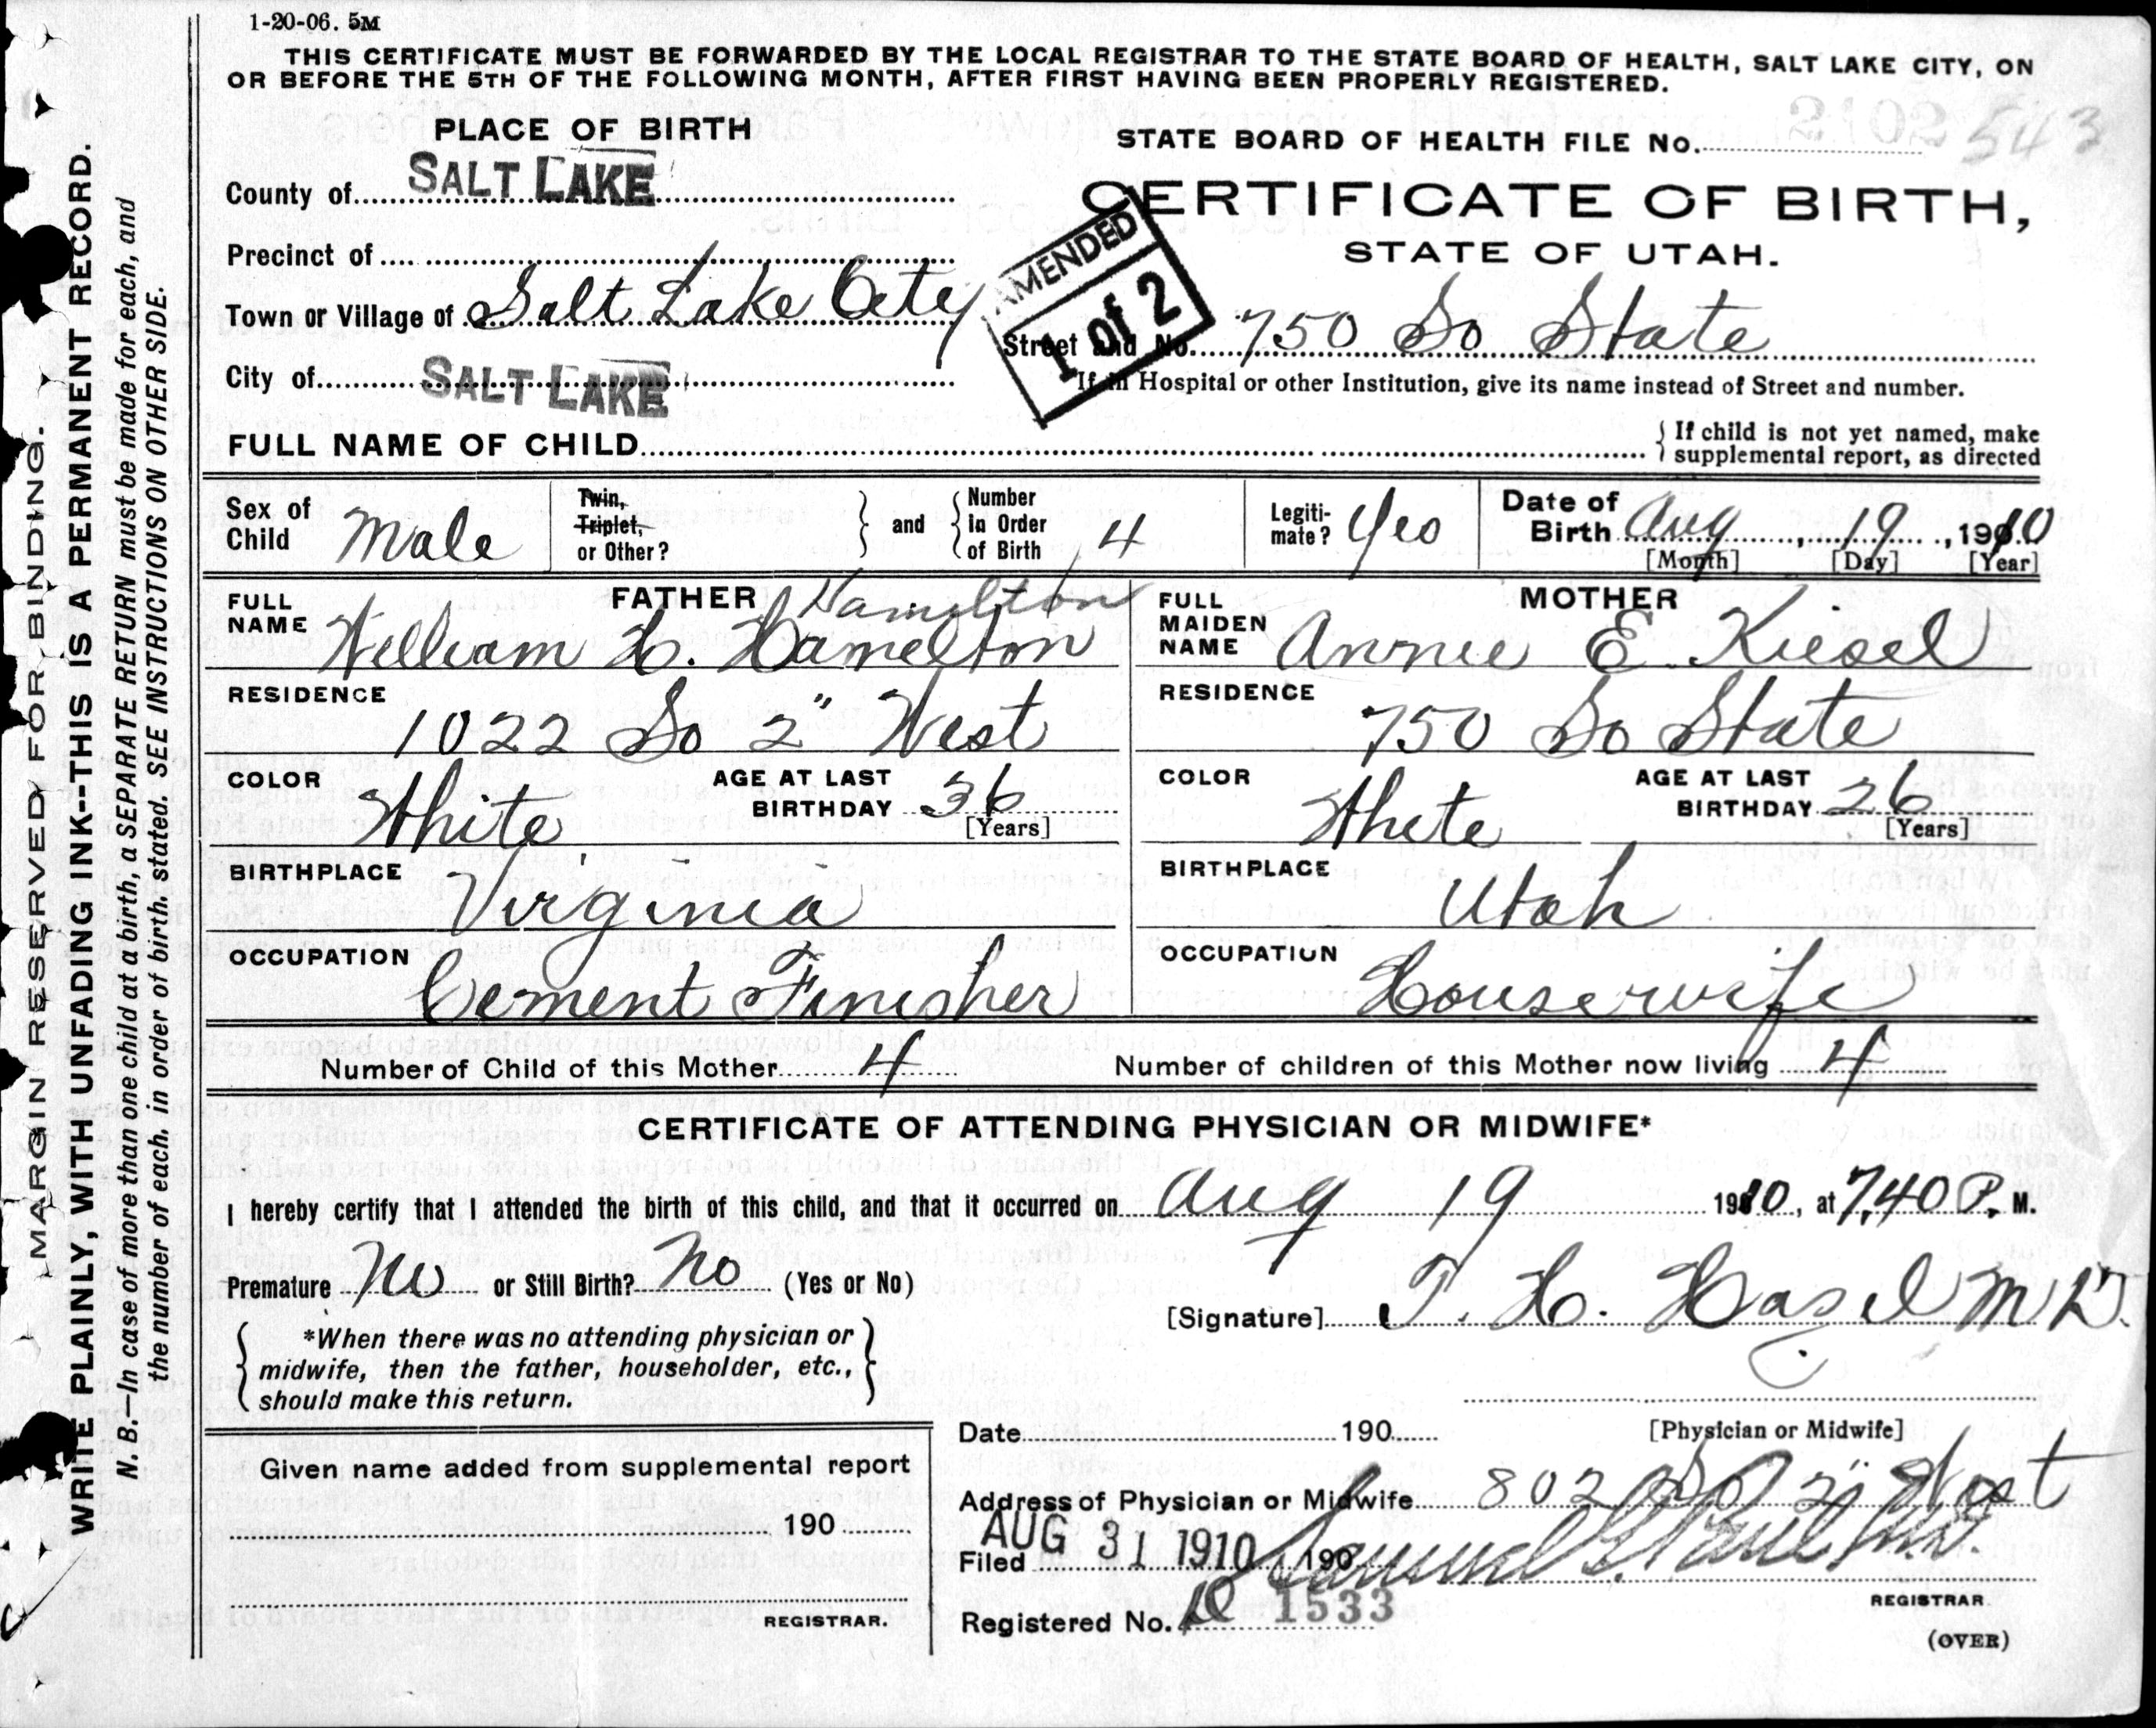 1-20-06. 5M
THIS CERTIFICATE MUST BE FORWARDED BY THE LOCAL REGISTRAR TO THE STATE BOARD OF HEALTH, SALT LAKE CITY, ON
OR BEFORE THE 5TH OF THE FOLLOWING MONTH, AFTER FIRST HAVING BEEN PROPERLY REGISTERED.
PLACE OF BIRTH
County of SALT LAKE
Precinct of
Town or Village of Salt Lake City
City of SALT LAKE
STATE BOARD OF HEALTH FILE No. 543
CERTIFICATE OF BIRTH,
STATE OF UTAH.
AMENDED
1 of 2
Street and No. 750 So State
If in Hospital or other Institution, give its name instead of Street and number.
FULL NAME OF CHILD
If child is not yet named, make
supplemental report, as directed
Sex of Child Male
Twin, Triplet, or Other?
and Number in Order of Birth 4
Legiti-mate? Yes
Date of Birth Aug 19, 1910
[Month] [Day] [Year]
FATHER
Hamilton
FULL NAME William H. Hamelton
RESIDENCE
1022 So 2" West
COLOR White
AGE AT LAST BIRTHDAY 36
[Years]
BIRTHPLACE
Virginia
OCCUPATION
Cement Finisher
MOTHER
FULL MAIDEN NAME Annie E. Kiesel
RESIDENCE
750 So State
COLOR White
AGE AT LAST BIRTHDAY 26
[Years]
BIRTHPLACE
Utah
OCCUPATION
Housewife
Number of Child of this Mother 4
Number of children of this Mother now living 4
CERTIFICATE OF ATTENDING PHYSICIAN OR MIDWIFE*
I hereby certify that I attended the birth of this child, and that it occurred on Aug 19 1910, at 7,40 P. M.
Premature No or Still Birth? No (Yes or No)
[Signature] T. H. Hazel M D.
*When there was no attending physician or
midwife, then the father, householder, etc.,
should make this return.
[Physician or Midwife]
Date 190
Address of Physician or Midwife 802 So 2" West
Given name added from supplemental report
190
REGISTRAR.
AUG 31 1910
Filed 190 Samuel G. Paul M.D.
REGISTRAR
Registered No. 1533
(OVER)
MARGIN RESERVED FOR BINDING.
WRITE PLAINLY, WITH UNFADING INK--THIS IS A PERMANENT RECORD.
N. B.—In case of more than one child at a birth, a SEPARATE RETURN must be made for each, and
the number of each, in order of birth, stated. SEE INSTRUCTIONS ON OTHER SIDE.